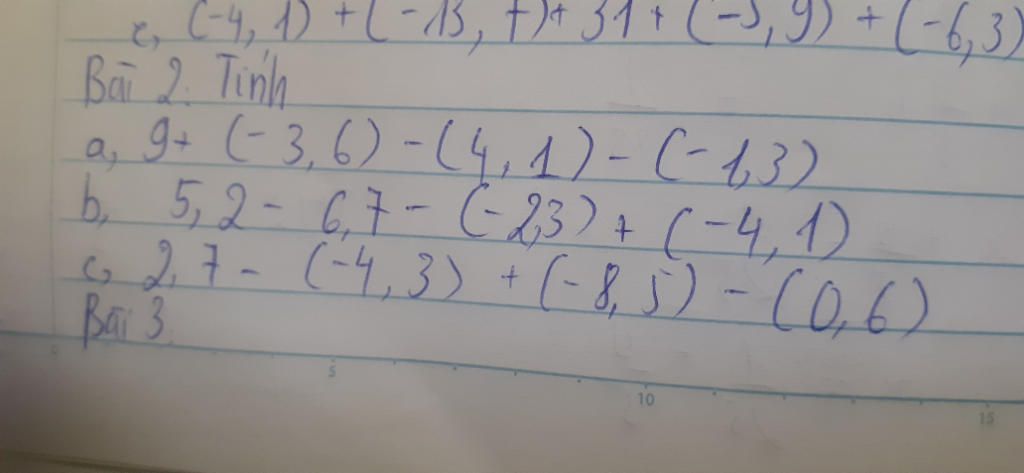 e, (-4,1) + (-13,7) + 31 + (-5,9) + (-6,3)
Bài 2: Tính
a, 9 + (-3,6) - (4,1) - (-1,3)
b, 5,2 - 6,7 - (-2,3) + (-4,1)
c, 2,7 - (-4,3) + (-8,5) - (0,6)
Bài 3
5
10
15